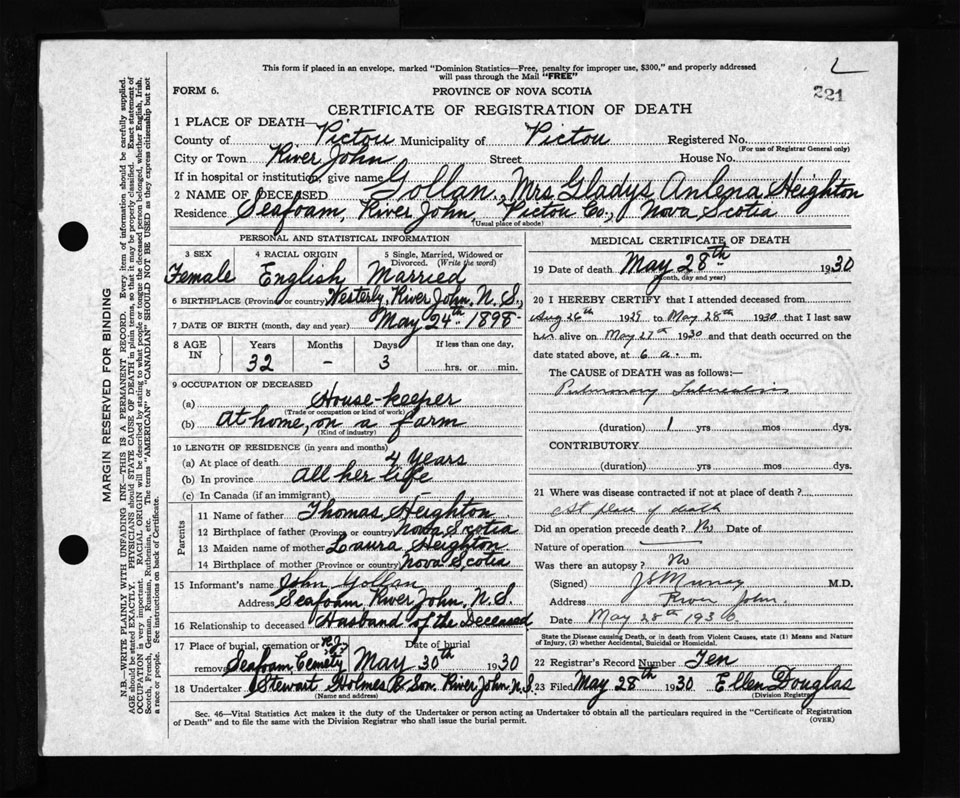 This form if placed in an envelope, marked "Dominion Statistics—Free, penalty for improper use, $300," and properly addressed
will pass through the Mail "FREE"
L
221
FORM 6.
PROVINCE OF NOVA SCOTIA
CERTIFICATE OF REGISTRATION OF DEATH
1 PLACE OF DEATH—
County of Pictou Municipality of Pictou Registered No.
(For use of Registrar General only)
City or Town River John Street House No.
If in hospital or institution, give name
2 NAME OF DECEASED Gollan, Mrs Gladys Anlena Heighton
Residence Seafoam, River John, Pictou Co., Nova Scotia
(Usual place of abode)
PERSONAL AND STATISTICAL INFORMATION
3 SEX 4 RACIAL ORIGIN 5 Single, Married, Widowed or
Divorced. (Write the word)
Female English Married
6 BIRTHPLACE (Province or country) Westerly, River John, N. S.,
7 DATE OF BIRTH (month, day and year) May 24th 1898
8 AGE IN Years Months Days If less than one day,
32 - 3 hrs. or min.
9 OCCUPATION OF DECEASED
(a) House-keeper
(Trade or occupation or kind of work)
(b) At home, on a farm
(Kind of industry)
10 LENGTH OF RESIDENCE (in years and months)
(a) At place of death 4 Years
(b) In province All her life
(c) In Canada (if an immigrant)
Parents
11 Name of father Thomas Heighton
12 Birthplace of father (Province or country) Nova Scotia
13 Maiden name of mother Laura Heighton
14 Birthplace of mother (Province or country) Nova Scotia
15 Informant's name John Gollan
Address Seafoam, River John, N. S.
16 Relationship to deceased Husband of the Deceased
17 Place of burial, cremation or Date of burial
removal Seafoam Cemety May 30th 1930
18 Undertaker Stewart Holmes & Son River John, N. S.
(Name and address)
MEDICAL CERTIFICATE OF DEATH
19 Date of death May 28th 1930
(Month, day and year)
20 I HEREBY CERTIFY that I attended deceased from
Aug 26th 1929 to May 28th 1930 that I last saw
her alive on May 27th 1930 and that death occurred on the
date stated above, at 6 a. m.
The CAUSE of DEATH was as follows:
Pulmonary Tuberculosis
(duration) 1 yrs mos. dys.
CONTRIBUTORY
(duration) yrs mos. dys.
21 Where was disease contracted if not at place of death?
At place of death
Did an operation precede death? No Date of
Nature of operation
Was there an autopsy? No
(Signed) Murray M.D.
Address River John.
Date May 28th 1930.
State the Disease causing Death, or in death from Violent Causes, state (1) Means and Nature
of Injury, (2) whether Accidental, Suicidal or Homicidal.
22 Registrar's Record Number Ten
23 Filed May 28th 1930 Ellen Douglas
(Division Registrar)
Sec. 46—Vital Statistics Act makes it the duty of the Undertaker or person acting as Undertaker to obtain all the particulars required in the "Certificate of Registration
of Death" and to file the same with the Division Registrar who shall issue the burial permit.
(OVER)
MARGIN RESERVED FOR BINDING
N.B.—WRITE PLAINLY WITH UNFADING INK—THIS IS A PERMANENT RECORD. Every item of information should be carefully supplied.
AGE should be stated EXACTLY. PHYSICIANS should STATE CAUSE OF DEATH in plain terms, so that it may be properly classified. Exact statement of
OCCUPATION is very important. RACIAL ORIGIN will be described by stating to what people or tongue the deceased person belonged, whether English, Irish,
Scotch, French, German, Russian, Ruthenian, etc. The terms "AMERICAN" or "CANADIAN" SHOULD NOT BE USED as they express citizenship but not
a race or people. See instructions on back of Certificate.